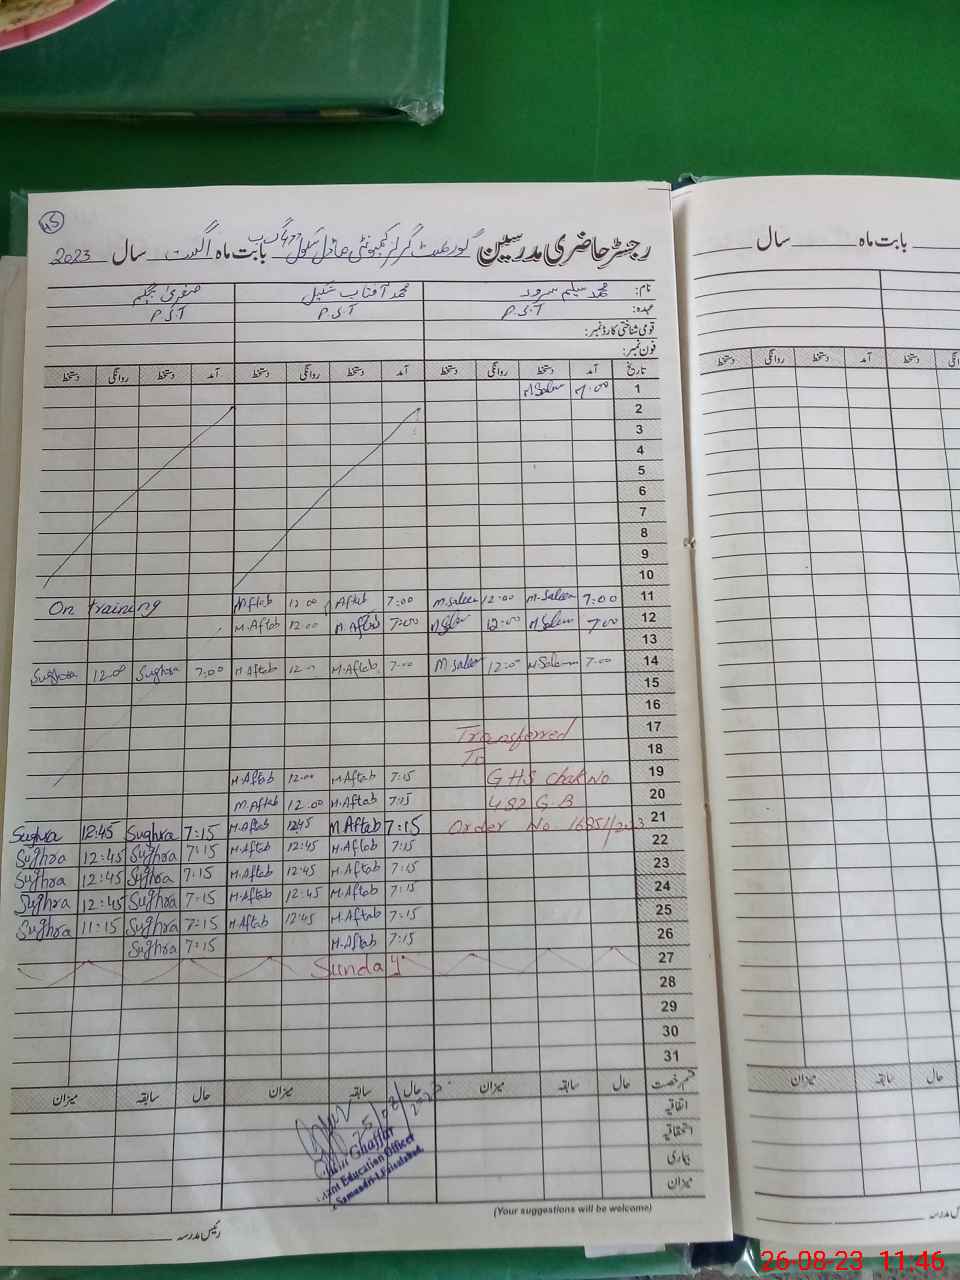 HS
رجسٹر حاضری مدرسین گورنمنٹ گرلز کمیونٹی ماڈل سکول 477 گ ب بابت ماہ اگست سال 2023
نام: محمد سلیم سرور محمد آفتاب شکیل صغریٰ بیگم
عہدہ: P.S.T P.S.T P.S.T
قومی شناختی کارڈ نمبر:
فون نمبر:
تاریخ آمد دستخط روانگی دستخط آمد دستخط روانگی دستخط آمد دستخط روانگی دستخط
M Saleem 7.00 1
2
3
4
5
6
7
8
9
10
On training M.Aftab 12.00 Aftab 7:00 M.Saleem 12:00 M.Saleem 7:00 11
M.Aftab 12.00 M.Aftab 7:00 12:00 M Saleem 7:00 12
13
Sughra 12:00 Sughra 7:00 M.Aftab M.Aftab 7:00 M.Saleem M Saleem 7:00 14
15
16
Transferred 17
To 18
M.Aftab 12:00 M.Aftab 7:15 GHS Chak No 19
M.Aftab 12.00 M.Aftab 7:15 482 G.B 20
Sughra 12:45 Sughra 7:15 M.Aftab 12:45 M Aftab 7:15 Order No 21
Sughra 12:45 Sughra 7:15 M.Aftab 12:45 M.Aftab 7:15 22
Sughra 12:45 Sughra 7:15 M.Aftab 12:45 M.Aftab 7:15 23
Sughra 12:45 Sughra 7:15 M.Aftab 12:45 M.Aftab 7:15 24
Sughra 11:15 Sughra 7:15 M.Aftab 12:45 M.Aftab 7:15 25
Sughra 7:15 M.Aftab 7:15 26
Sunday 27
28
29
30
31
قسم رخصت حال سابقہ میزان حال سابقہ میزان حال سابقہ میزان
اتفاقیہ
استحقاقیہ
بیماری
میزان
25/08/2023
Ghaffar
Education Officer
Samundri-I, Faisalabad.
(Your suggestions will be welcome)
رئیس مدرسہ
بابت ماہ سال
آمد دستخط روانگی دستخط
حال سابقہ میزان
رئیس مدرسہ
26-08-23 11:46